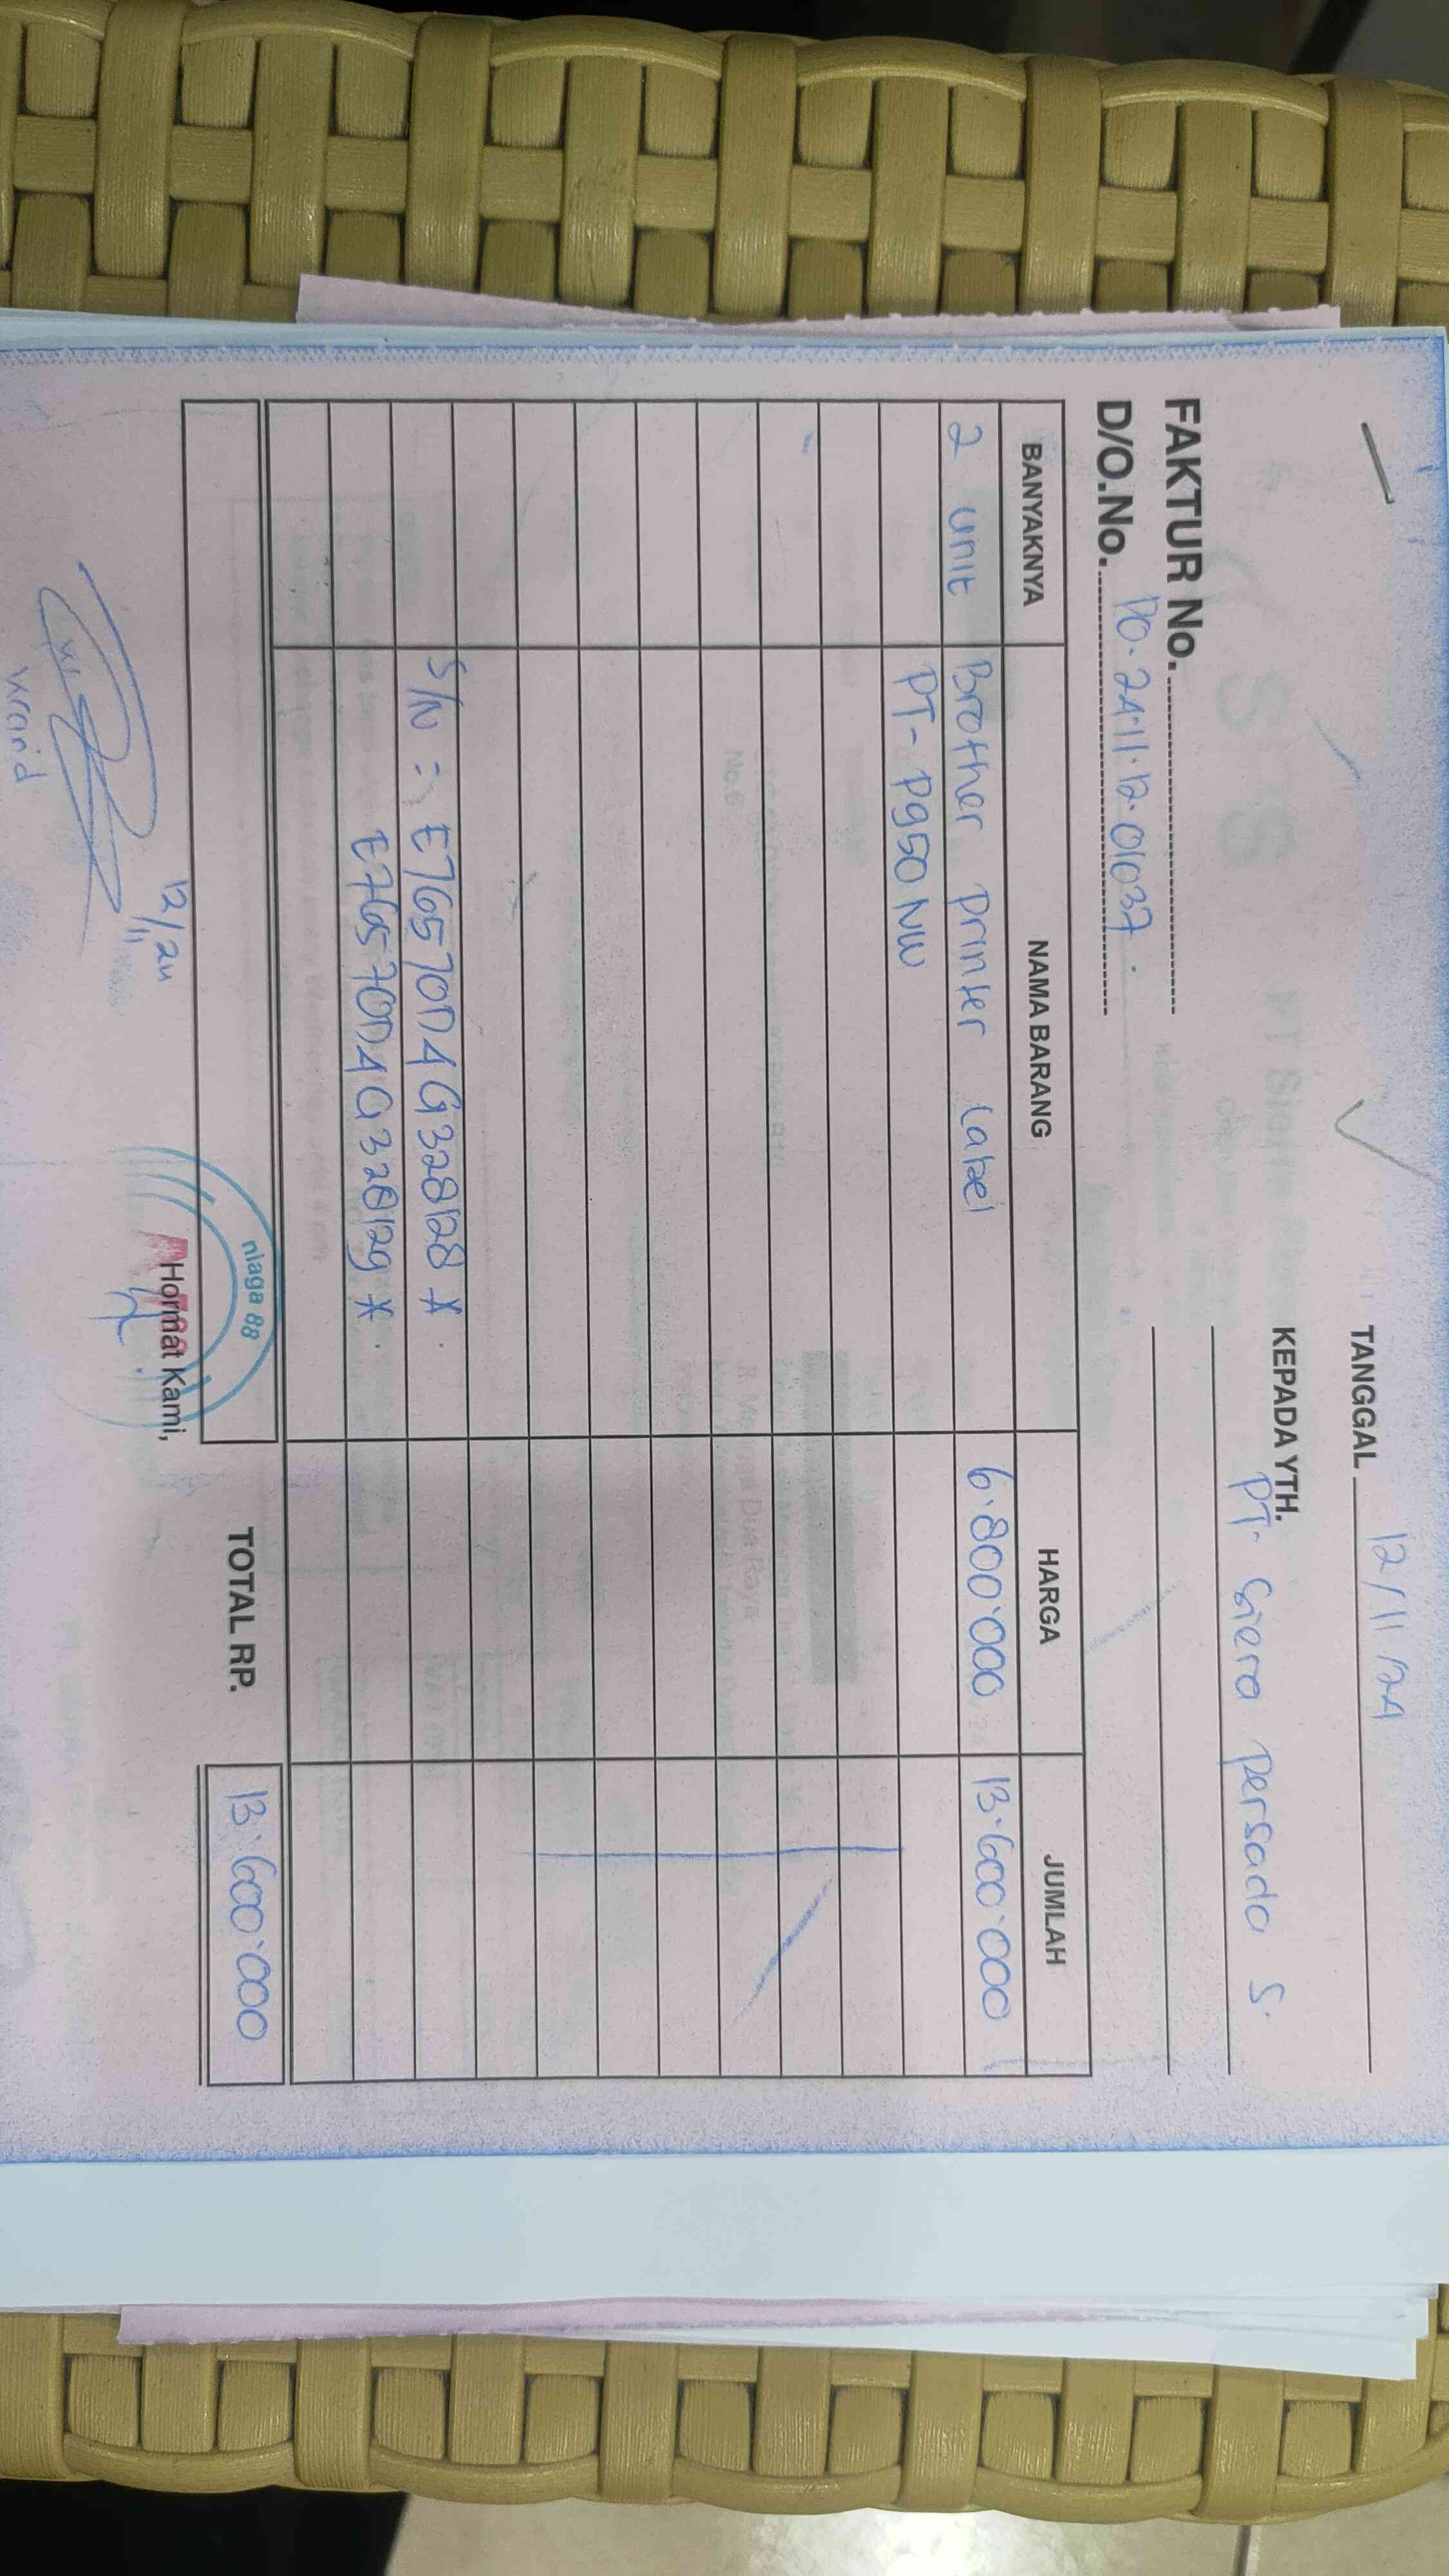 TANGGAL 12/11/24
KEPADA YTH.
PT. Siera Persada S.
FAKTUR No.
D/O.No. DO.24.11.12.01037.
BANYAKNYA NAMA BARANG HARGA JUMLAH
2 unit Brother Printer Label 6.800.000 13.600.000
PT-P950NW
S/N = E76570D4G328128 *.
E76570D4G328129 *.
TOTAL RP. 13.600.000
niaga 88
Hormat Kami,
12/11/24